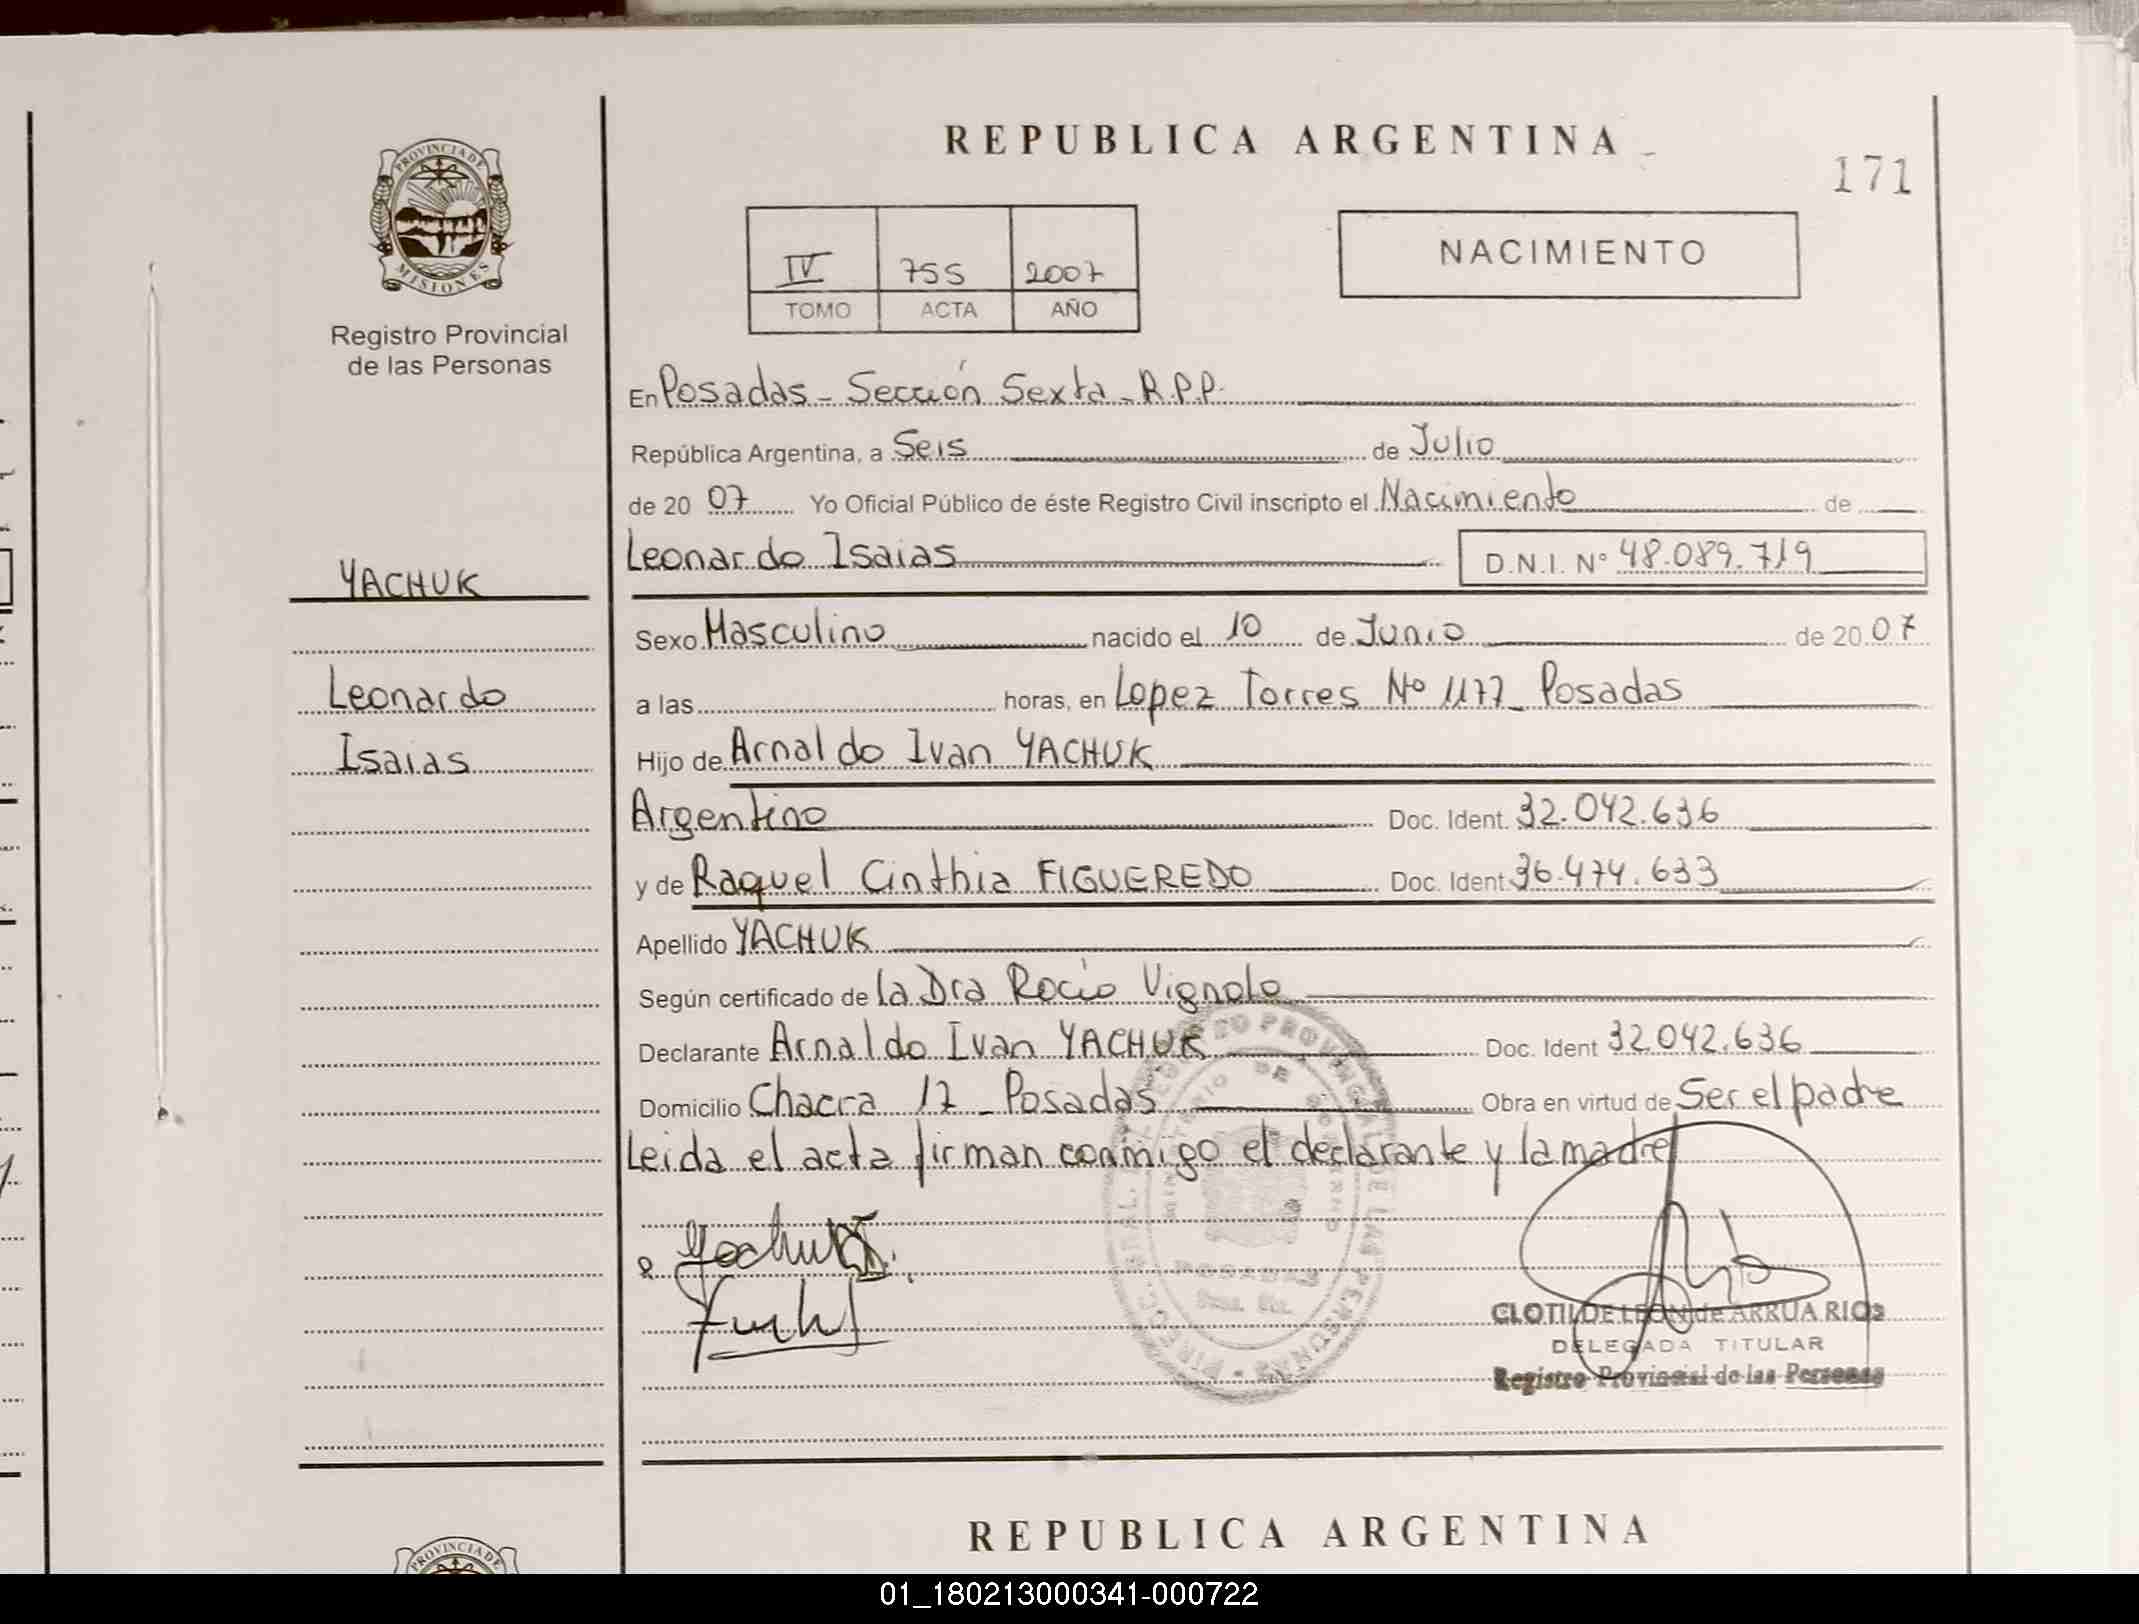 REPUBLICA ARGENTINA
171
PROVINCIA DE
MISIONES
Registro Provincial
de las Personas
IV 755 2007
TOMO ACTA AÑO
NACIMIENTO
En Posadas - Sección Sexta - R.P.P.
República Argentina, a Seis de Julio
de 20 07 Yo Oficial Público de éste Registro Civil inscripto el Nacimiento de
Leonardo Isaias D.N.I. Nº 48.089.719
YACHUK
Leonardo
Isaias
Sexo Masculino nacido el 10 de Junio de 20 07
a las horas, en Lopez Torres Nº 1177 - Posadas
Hijo de Arnaldo Ivan YACHUK
Argentino Doc. Ident. 32.042.636
y de Raquel Cinthia FIGUEREDO Doc. Ident 36.474.633
Apellido YACHUK
Según certificado de la Dra Rocío Vignolo
Declarante Arnaldo Ivan YACHUK Doc. Ident 32.042.636
Domicilio Chacra 17 - Posadas Obra en virtud de Ser el padre
Leida el acta firman conmigo el declarante y la madre
CLOTILDE LEON de ARRUA RIOS
DELEGADA TITULAR
Registro Provincial de las Personas
REPUBLICA ARGENTINA
PROVINCIA DE
01_180213000341-000722